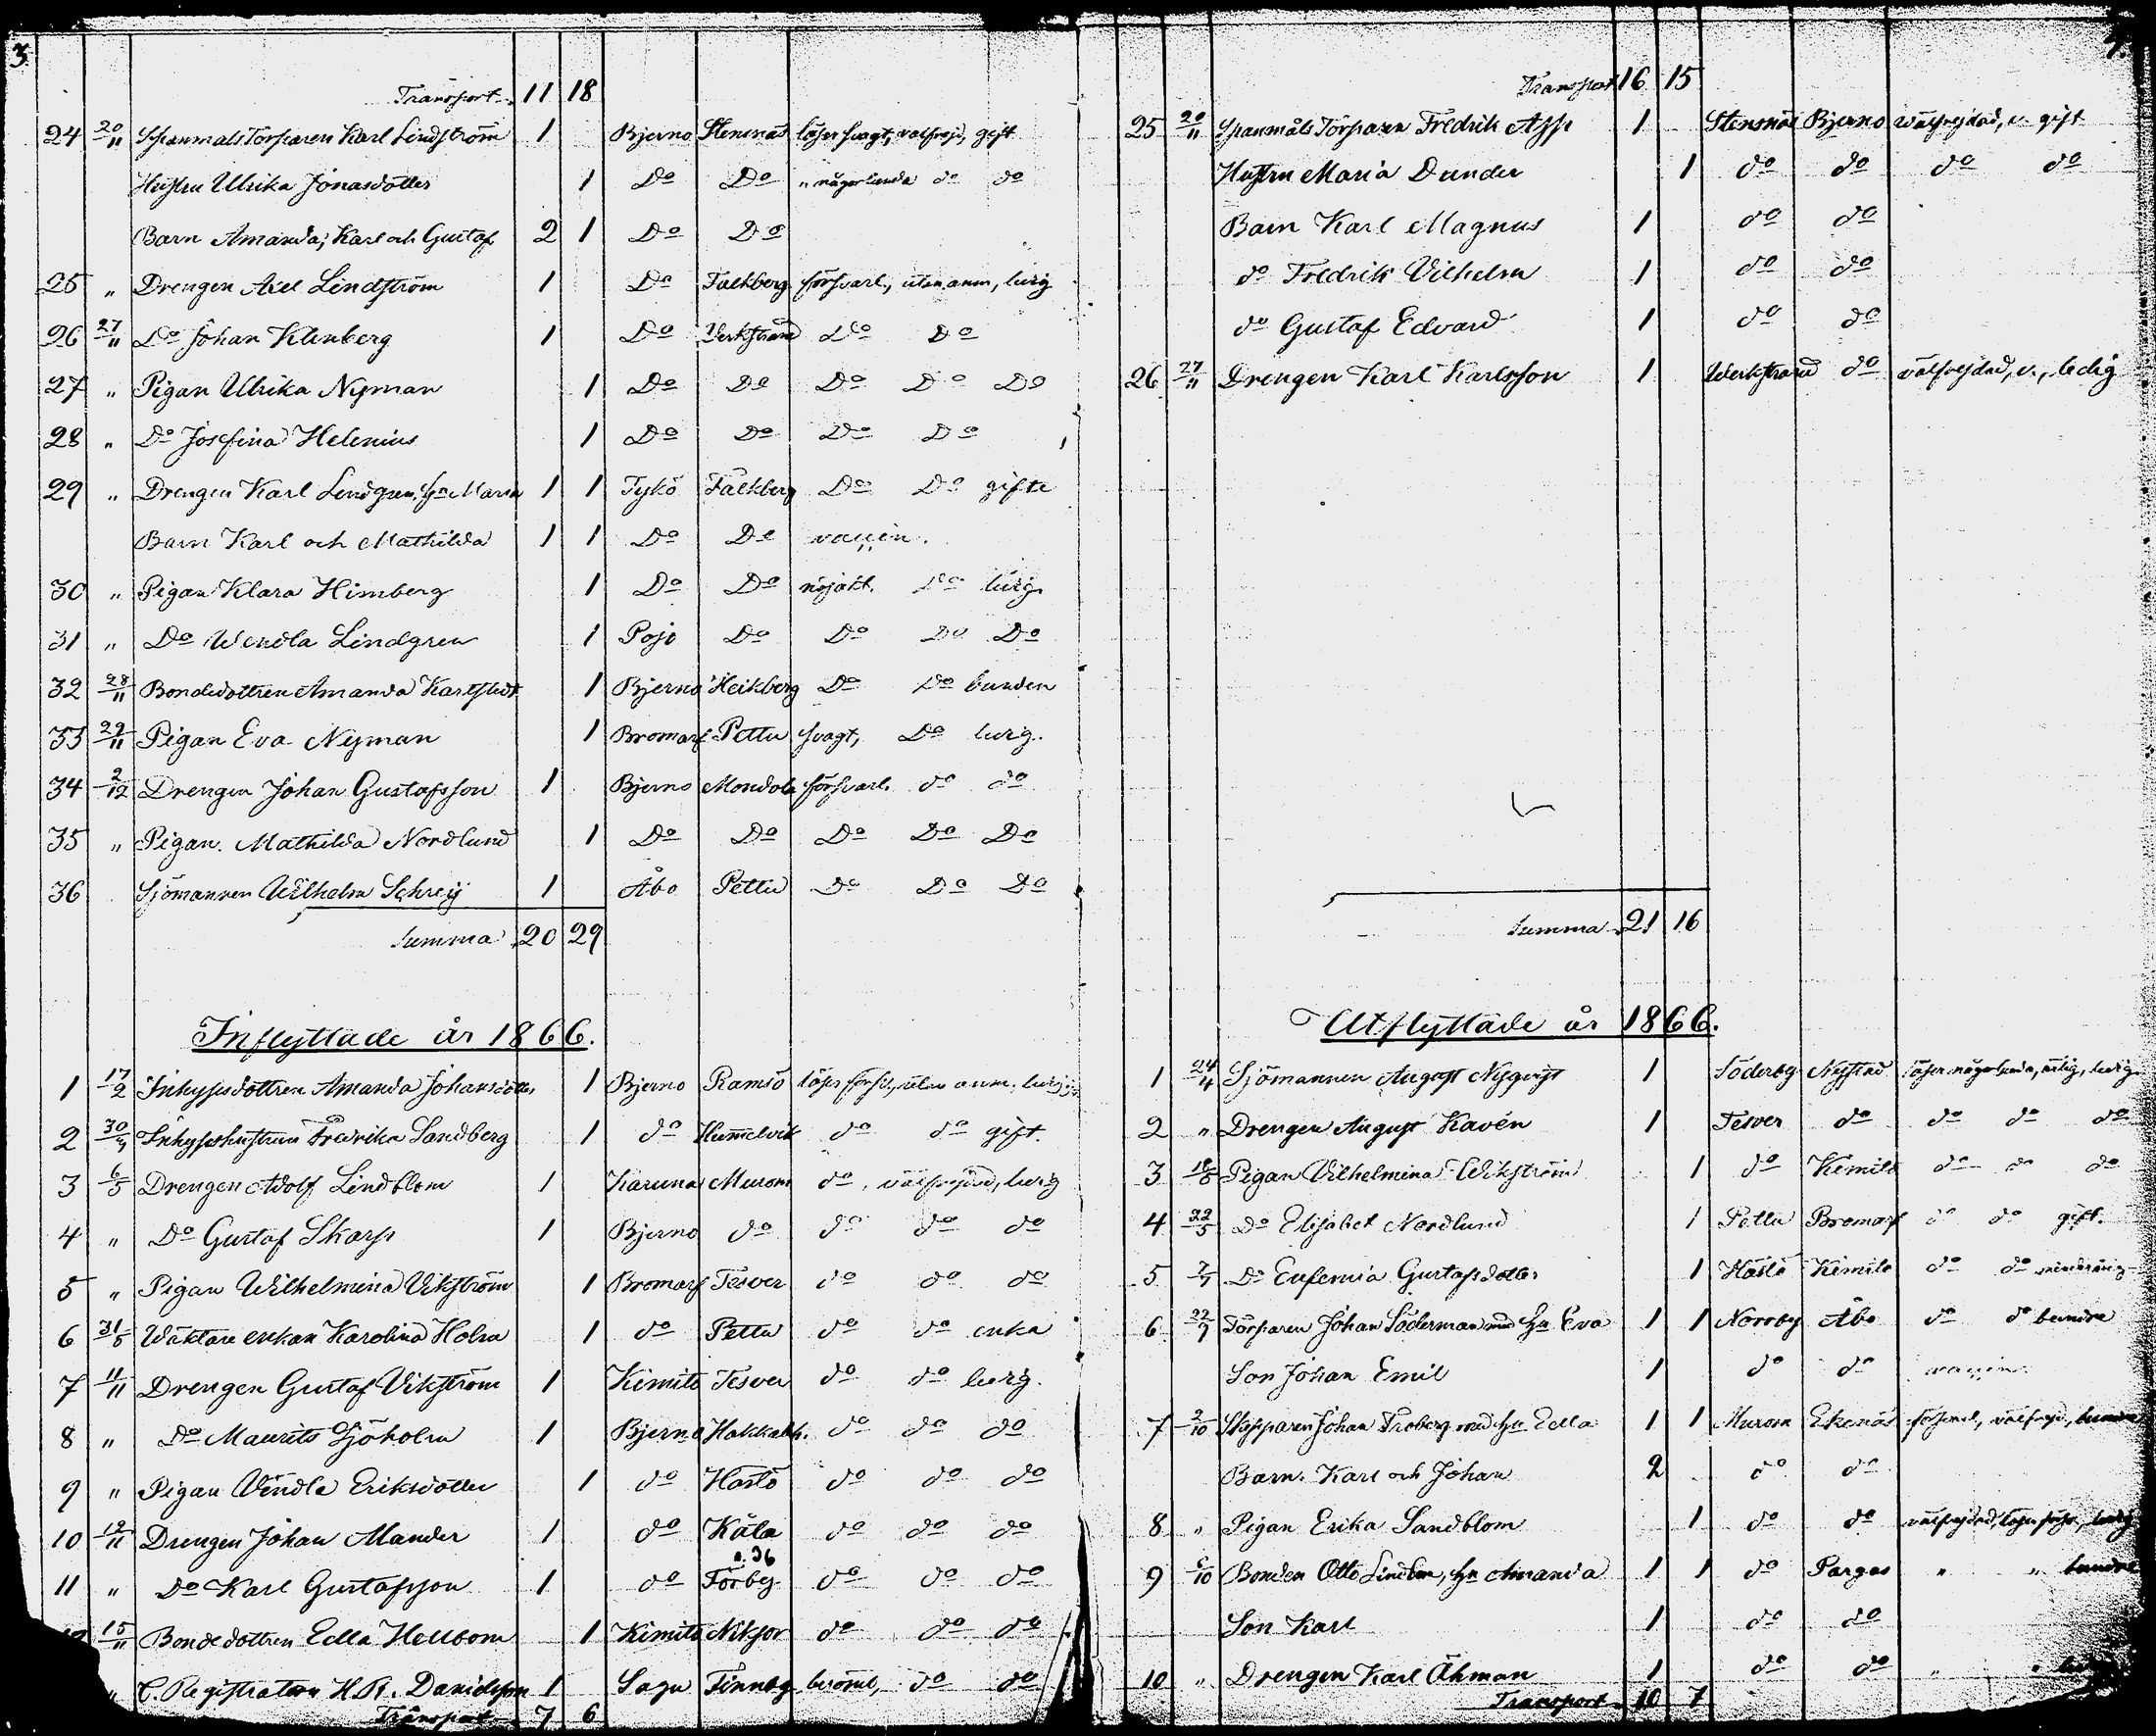 3.
Transport 11 18
24 20/11 Spanmåls Torparen Karl Lindström 1 Bjerno Stensnäs läser svagt, välfrejd, gift
Hustru Ulrika Jonasdotter 1 Do Do " någorlunda do do
Barn Amanda, Karl och Gustaf 2 1 Do Do
25 " Drengen Axel Lindström 1 Do Falkberg försvarl., utan anm., ledig
26 27/11 Do Johan Klinberg 1 Do Verkstrand Do Do
27 " Pigan Ulrika Nyman 1 Do Do Do Do Do
28 " Do Josefina Helenius 1 Do Do Do Do
29 " Drengen Karl Lindgren, Hu Maria 1 1 Tykö Falkberg Do Do gifte
Barn Karl och Mathilda 1 1 Do Do vaccin.
30 " Pigan Klara Himberg 1 Do Do nöjakt. Do ledig
31 " Do Wendla Lindgren 1 Pojo Do Do Do Do
32 28/11 Bondedottren Amanda Karlstedt 1 Bjerno Heikberg Do Do bunden
33 29/11 Pigan Eva Nyman 1 Bromarf Pettu svagt, Do ledig.
34 2/12 Drengen Johan Gustafsson 1 Bjerno Mondola försvarl. do do
35 " Pigan Mathilda Nordlund 1 Do Do Do Do Do
36 Sjömannen Wilhelm Schreij 1 Åbo Pettu Do Do Do
Summa 20 29
Inflyttade år 1866.
1 17/2 Inhysesdottren Amanda Johansdotter 1 Bjerno Ramsö läser försv., utan anm. ledig
2 30/4 Inhyseshustrun Fredrika Sandberg 1 do Hummelvik do do gift.
3 6/5 Drengen Adolf Lindblom 1 Karuna Murom do, välfrejdad, ledig
4 " Do Gustaf Skarp 1 Bjerno do do do do
5 " Pigan Wilhelmina Vikström 1 Bromarf Tesver do do do
6 31/5 Wäktare enkan Karolina Holm 1 do Pettu do do enka
7 11/11 Drengen Gustaf Vikström 1 Kimito Tesver do do ledig.
8 " Do Maurits Sjöholm 1 Bjerno do do do
9 " Pigan Vendla Eriksdotter 1 do Hastö do do do
10 12/11 Drengen Johan Mander 1 do Kåla do do do
11 " Do Karl Gustafsson 1 do Förby do do do
15/11 Bondedottren Edla Hellbom 1 Kimito Niksor do do do
" C. Registratorn H. R. Davidsson 1 Sagu Finnby berömd, do do
Transport 7 6
Transport 16 15
25 20/11 Spanmåls Torparen Fredrik Asp 1 Stensnäs Bjerno välfrejdad, o. gift
Hustru Maria Dunder 1 do do do do
Barn Karl Magnus 1 do do
do Fredrik Vilhelm 1 do do
do Gustaf Edvard 1 do do
26 27/11 Drengen Karl Karlsson 1 Werkstrand do välfrejdad, o., ledig
Summa 21 16
Utflyttade år 1866.
1 24/4 Sjömannen August Nyqvist 1 Söderby Nystad läser någorlunda, ärlig, ledig
2 " Drengen August Kavén 1 Tesver do do do do
3 Pigan Vilhelmina Wikström 1 do Kimito do do do
4 22/5 Do Elisabet Nordlund 1 Pettu Bromarf do do gift.
5 Do Eufemia Gustafsdotter 1 Hästö Kimito do do minderårig
6 22/9 Torparen Johan Söderman med Hu Eva 1 1 Norrby Åbo do do bundne
Son Johan Emil 1 do do vaccin.
7 2/10 Skepparen Johan Froberg med Hu Edla 1 1 Murom Ekenäs försvarl., välfrejd, bundne
Barn. Karl och Johan 2 do do
8 " Pigan Erika Sandblom 1 do do välfrejdad, läser försv., ledig
9 6/10 Bonden Otto Lindbom, Hu Amanda 1 1 do Pargas " " bundne
Son Karl 1 do do
10 " Drengen Karl Öhman 1 do do "
Transport 10 7